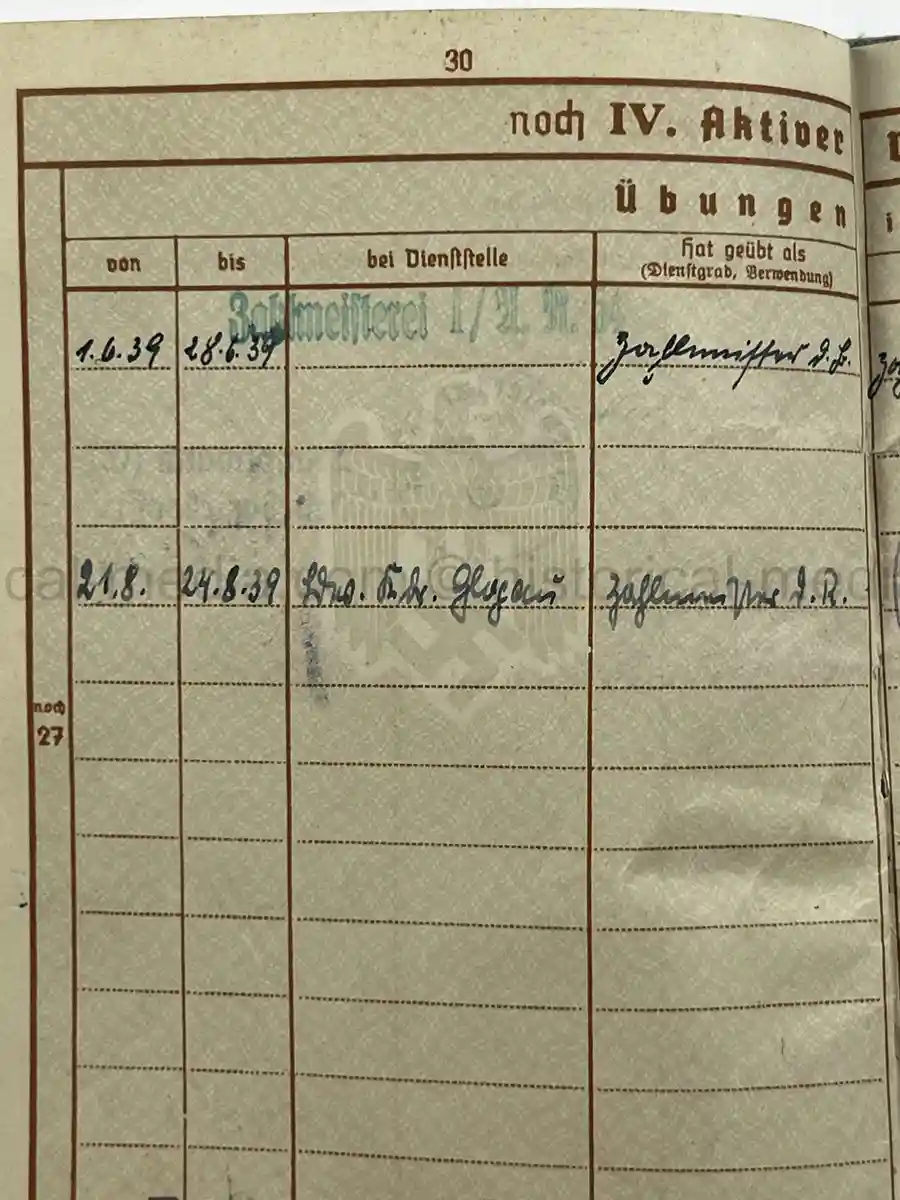 30
noch IV. Aktiver
Übungen
von bis bei Dienststelle Hat geübt als
(Dienstgrad, Verwendung)
Zahlmeisterei I/A. R.
1.6.39 28.6.39 Zahlmeister d. B.
21.8. 24.8.39 Kdr. Glogau Zahlmeister d. R.
noch
27